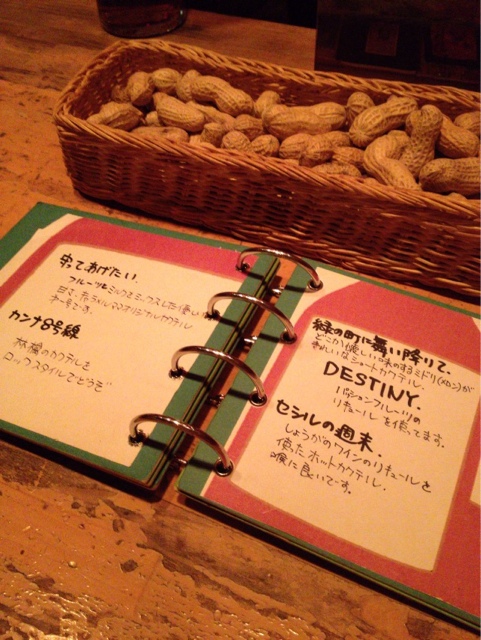 守ってあげたい.
フルーツとミルクをミックスした優しい
カクテル
カンナ8号線
林檎のカクテルを
ロックスタイルでどうぞ
緑の町に舞い降りて、
どこか優しい味のするミドリ(メロン)が
ショートカクテル.
DESTINY.
パッションフルーツの
リキュールを使ってます。
セシルの週末.
しょうがのワインのリキュールを
使ったホットカクテル.
喉に良いです。